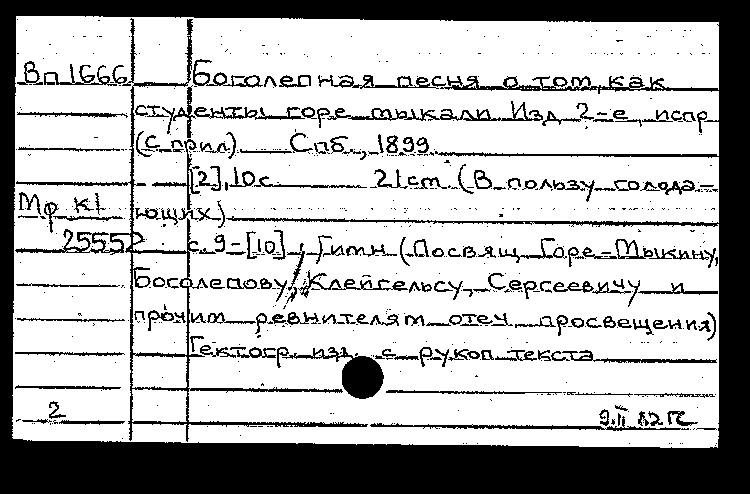 Вп 1666 Боголепная песня о том, как
студенты горе мыкали Изд 2-е, испр
(с прил) Спб., 1899
[2], 10 с 21 cm (В пользу голода-
Мф К1 ющих)
25552 с. 9-[10], Гимн (Посвящ Горе-Мыкину,
Боголепову, Клейгельсу, Сергеевичу и
прочим ревнителям отеч просвещения)
Гектогр. изд. с рукоп текста
2 9.II 82 ГС